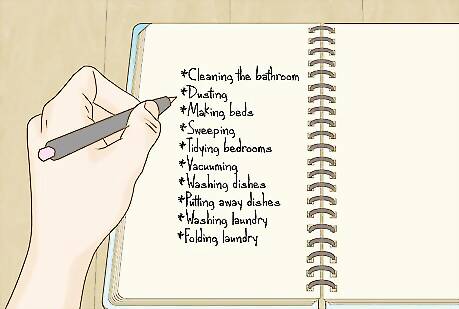 *Cleaning the bathroom
*Dusting
*Making beds
*Sweeping
*Tidying bedrooms
*Vacuuming
*Washing dishes
*Putting away dishes
*Washing laundry
*Folding laundry